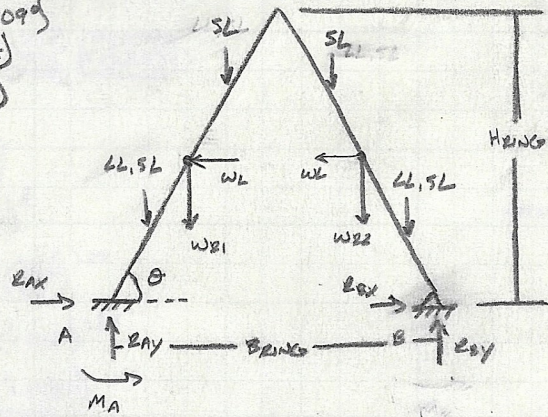 SL
SL
HRING
LL, SL
WL
WL
LL, SL
WR1
WR2
θ
RAX
RBX
A
RAY
BRING
B
RBY
MA